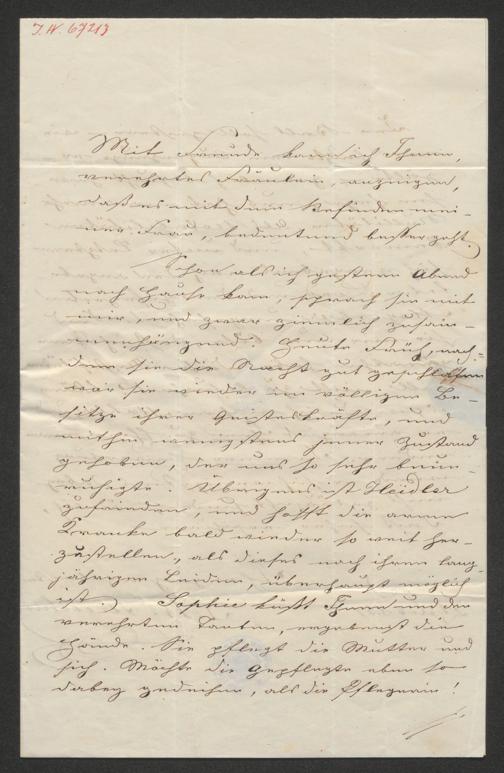 I.N. 67213
Mit Freude kann ich Ihnen,
verehrtes Fräulein, anzeigen,
daß es mit dem Befinden mei-
ner Frau, bedeutend besser geht.
Schon als ich gestern Abend
nach Hause kam, sprach sie mit
mir, und zwar ziemlich zusam-
menhängend. Heute Früh, nach-
dem sie die Nacht gut geschlafen
war sie wieder im völligen Be-
sitze ihrer Geisteskräfte, und
mithin wenigstens jener Zustand
gehoben, der uns so sehr beun-
ruhigte. Übrigens ist Heidler
zufrieden, und hofft die arme
Kranke bald wieder so weit her-
zustellen, als dieses nach ihren lang-
jährigen Leiden, überhaupt möglich
ist. Sophie küßt Ihnen und den
verehrten Tanten, ergebenst die
Hände. Sie pflegt die Mutter und
sich. Möchte die Gepflegte eben so
dabey gedeihen, als die Pflegerin!